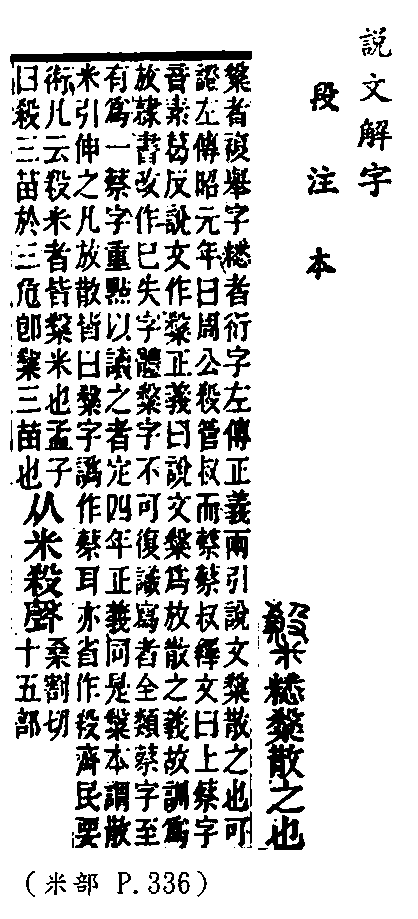 說文解字
段注本
𥻦䊝𥻦散之也
𥻦者複舉字䊝者衍字左傳正義兩引說文𥻦散之也可
證左傳昭元年曰周公殺管叔而蔡蔡叔釋文曰上蔡字
音素葛反說文作𥻦正義曰說文𥻦爲放散之義故訓爲
放隸書改作已失字體𥻦字不可復識寫者全類蔡字至
有爲一蔡字重點以讀之者定四年正義同是𥻦本謂散
米引伸之凡放散皆曰𥻦字譌作蔡耳亦省作殺齊民要
術凡云殺米者皆𥻦米也孟子
曰殺三苗於三危卽𥻦三苗也
从米殺聲
桑割切
十五部
(米部 P.336)